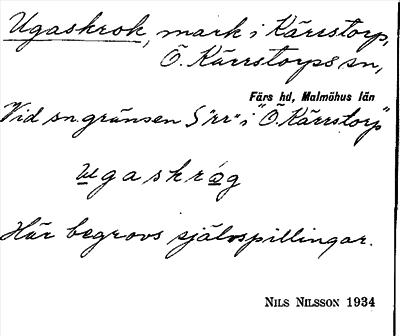 Ugaskrok, mark i Kärrstorp,
Ö. Kärrstorps sn,
Färs hd, Malmöhus län
Vid sn.gränsen S "rr" i "Ö. Kärrstorp"
ugaskrǫg
Här begrovs självspillingar.
NILS NILSSON 1934